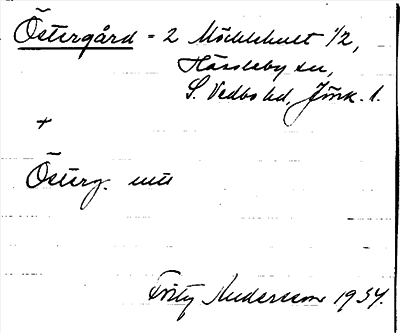 Östergård - 2 Möcklehult 1/2,
Hässleby sn,
S. Vedbo hd, Jönk. l.
+
Österg.
Fritz Andersson 1934.